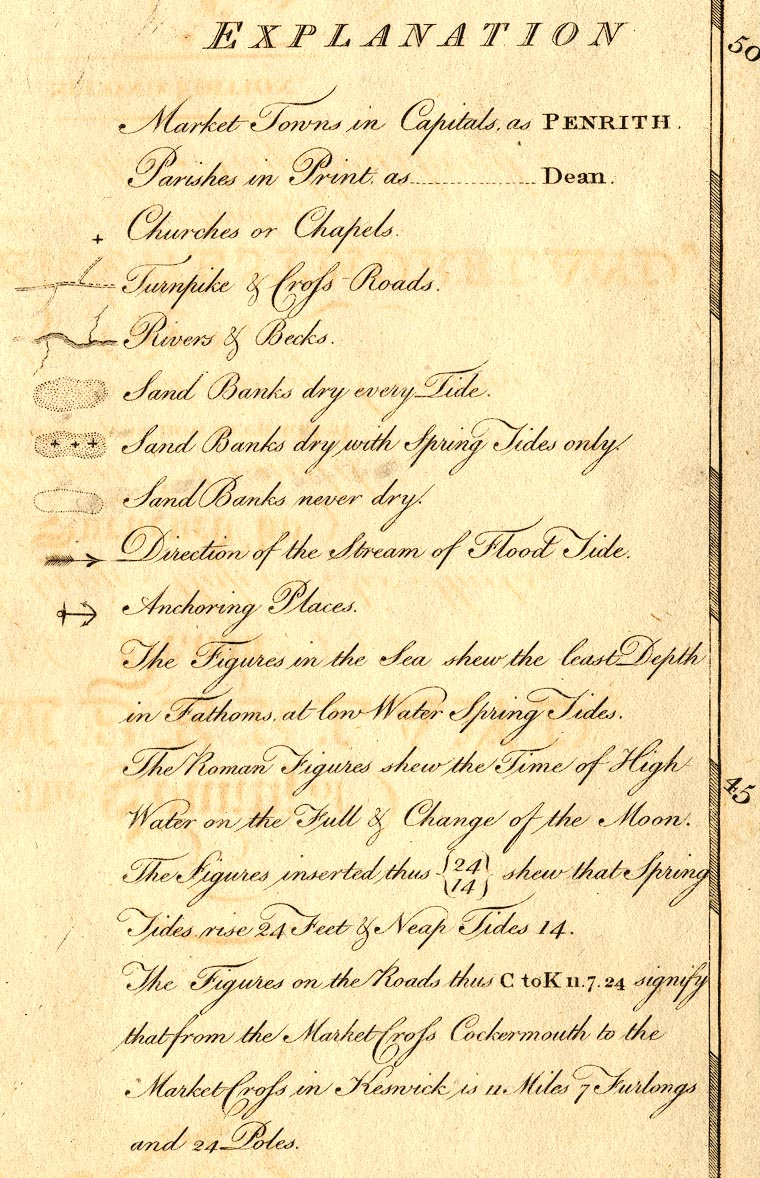 EXPLANATION
50
Market Towns in Capitals, as PENRITH.
Parishes in Print, as............... Dean.
Churches or Chapels.
Turnpike & Croſs Roads.
Rivers & Becks.
Sand Banks dry every Tide.
Sand Banks dry with Spring Tides only.
Sand Banks never dry.
Direction of the Stream of Flood Tide.
Anchoring Places.
The Figures in the Sea shew the least Depth
in Fathoms, at low Water Spring Tides.
The Roman Figures shew the Time of High
45
Water on the Full & Change of the Moon.
The Figures inserted thus {24 14} shew that Spring
Tides rise 24 Feet & Neap Tides 14.
The Figures on the Roads thus C to K 11.7.24 signify
that from the Market Croſs Cockermouth to the
Market Croſs in Keswick is 11 Miles 7 Furlongs
and 24 Poles.